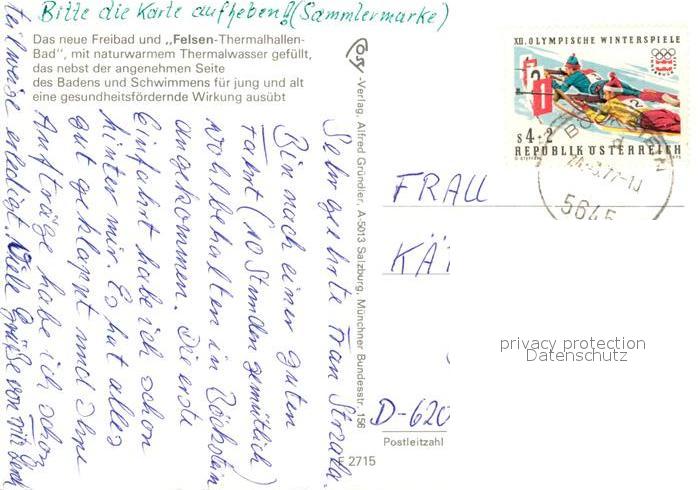 Bitte die Karte aufheben! (Sammlermarke)
Das neue Freibad und „Felsen-Thermalhallen-
Bad", mit naturwarmem Thermalwasser gefüllt,
das nebst der angenehmen Seite
des Badens und Schwimmens für jung und alt
eine gesundheitsfördernde Wirkung ausübt
Cosy-Verlag, Alfred Gründler, A-5013 Salzburg, Münchner Bundesstr. 156
F 2715
Sehr geehrte Frau
Bin nach einer guten
Fahrt (10 Stunden gemütlich)
wohlbehalten in Böckstein
angekommen. Die erste
Einfahrt habe ich schon
hinter mir. Es hat alles
gut geklappt und Ihre
Aufträge habe ich schon
teilweise erledigt. Viele Grüße von
XII. OLYMPISCHE WINTERSPIELE
S 4+2
REPUBLIK ÖSTERREICH
BÖCKSTEIN
5645
FRAU
KÄ
D-620
Postleitzahl
privacy protection
Datenschutz